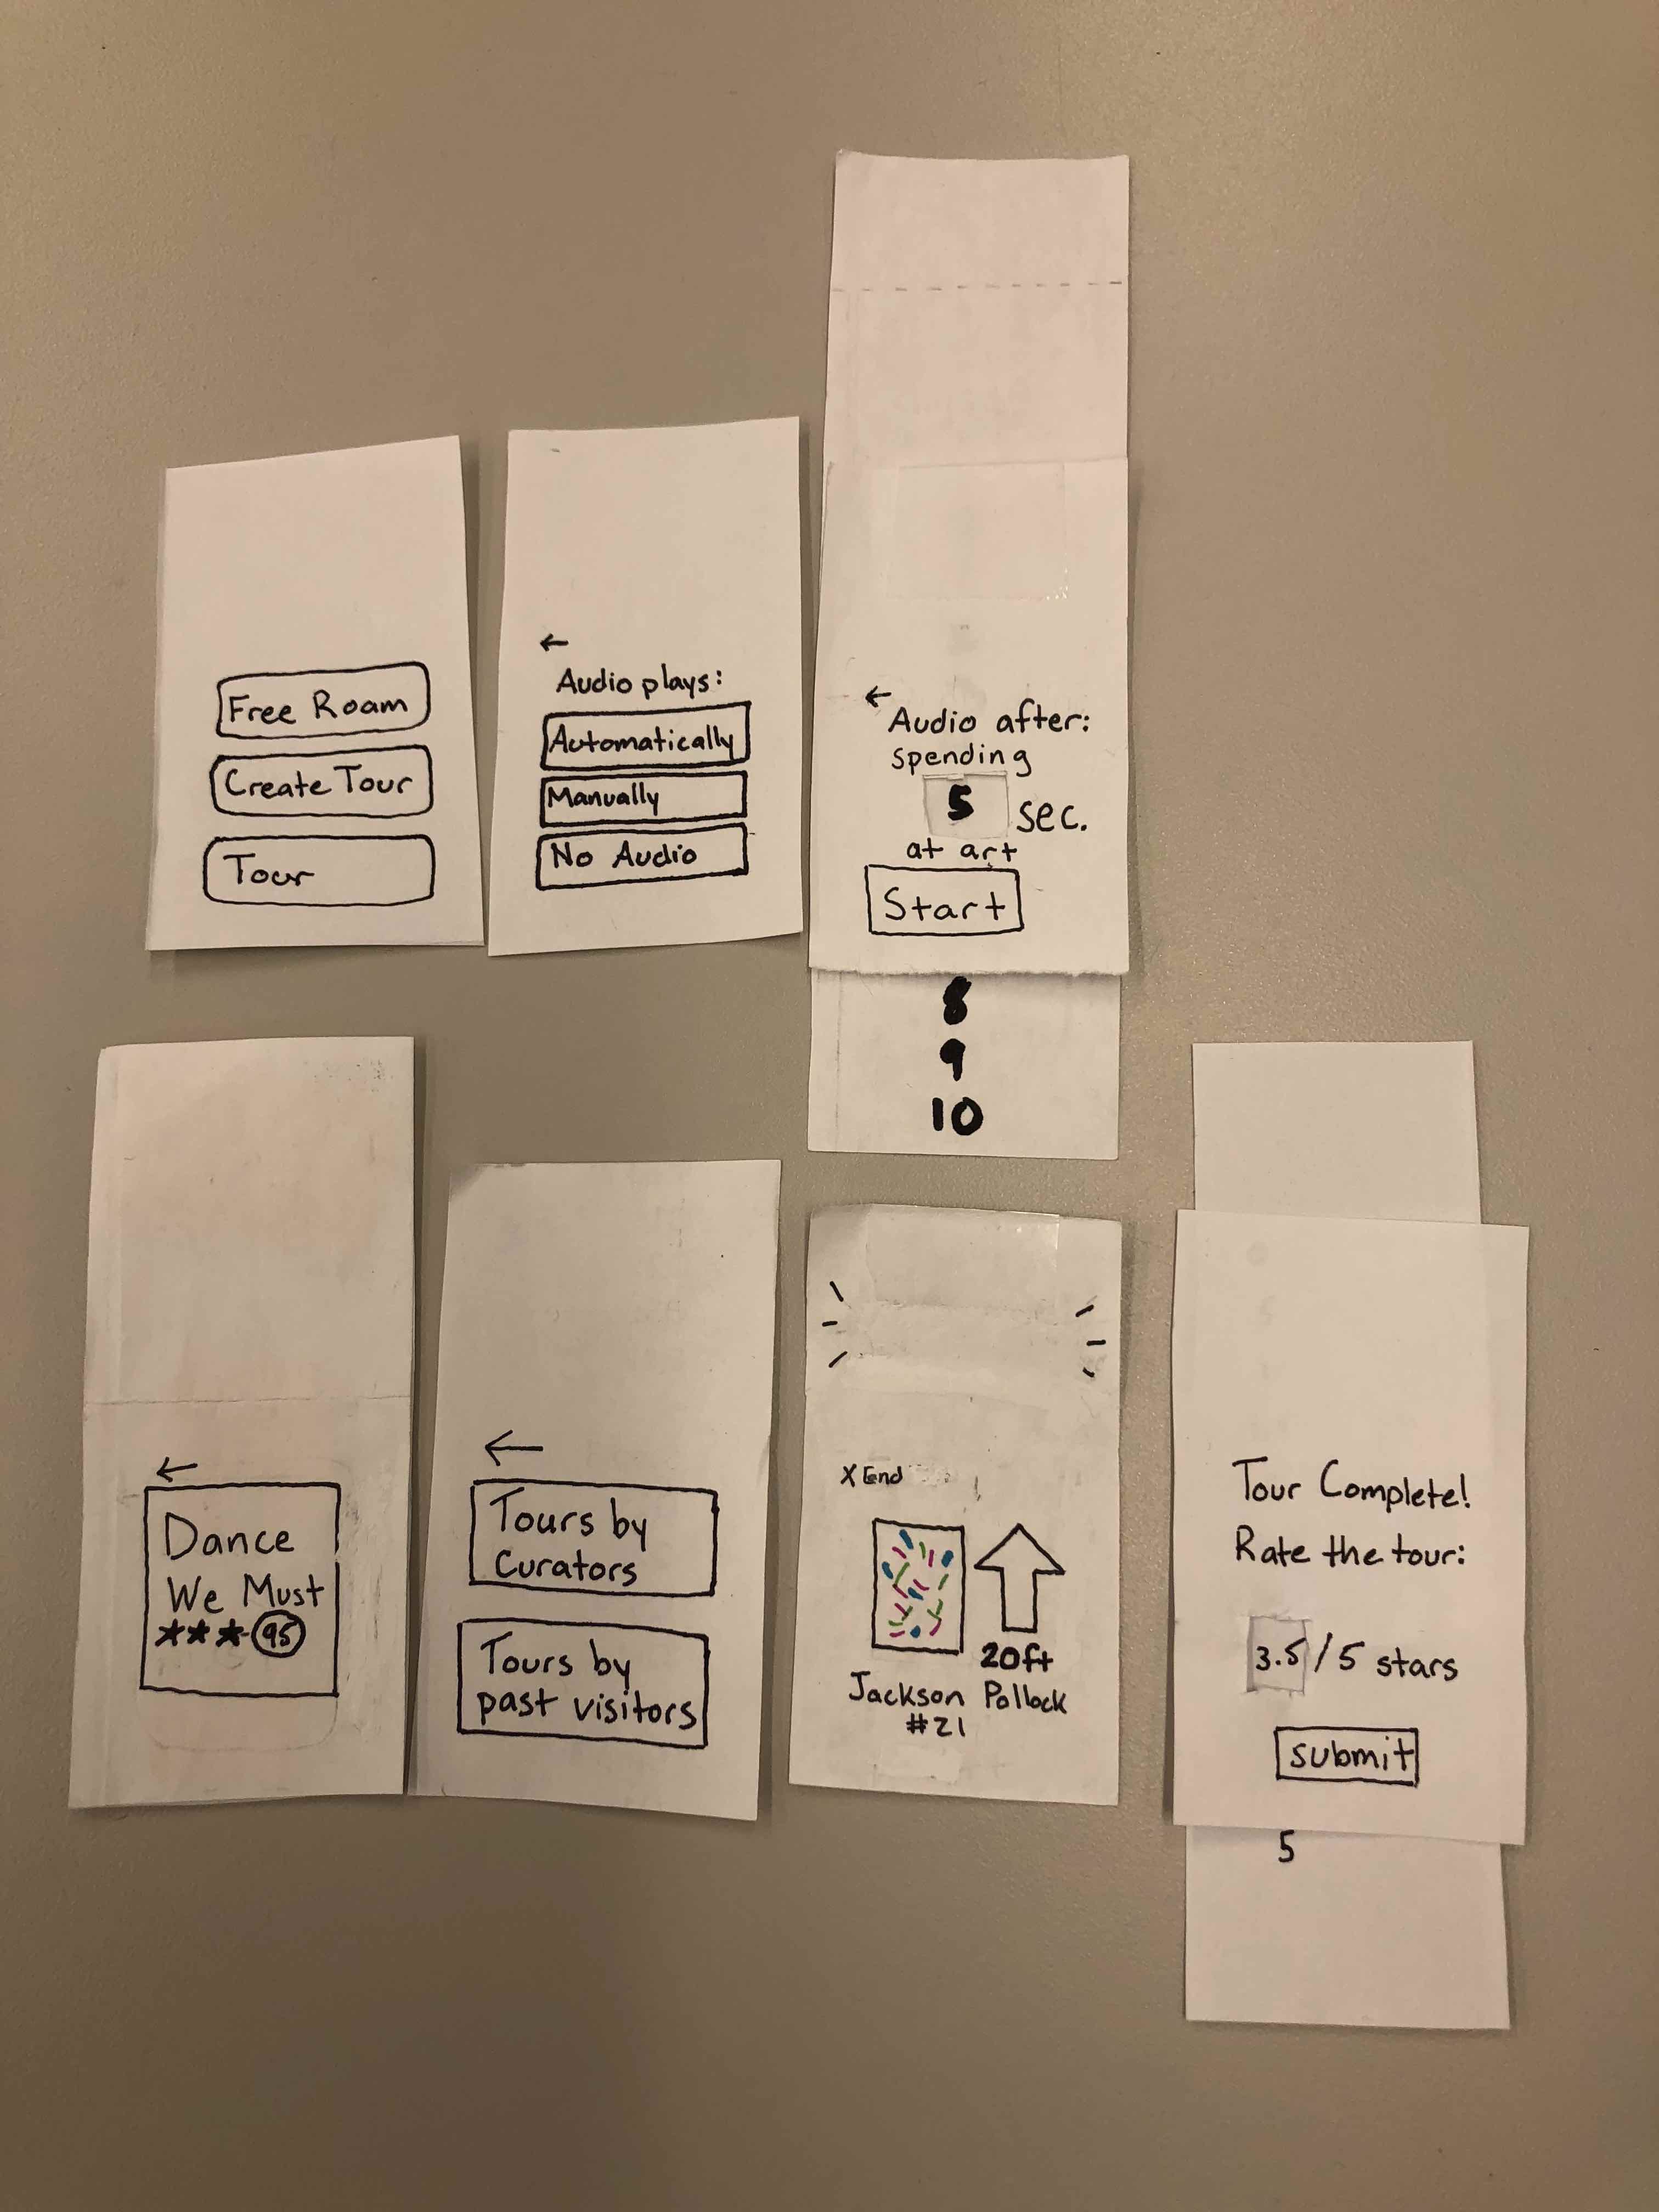 Free Roam
Create Tour
Tour
←
Audio plays:
Automatically
Manually
No Audio
←
Audio after:
spending
5 sec.
at art
Start
8
9
10
←
Dance
We Must
★★★ 95
←
Tours by
Curators
Tours by
past visitors
X End
20ft
Jackson Pollock
#21
Tour Complete!
Rate the tour:
3.5/5 stars
submit
5